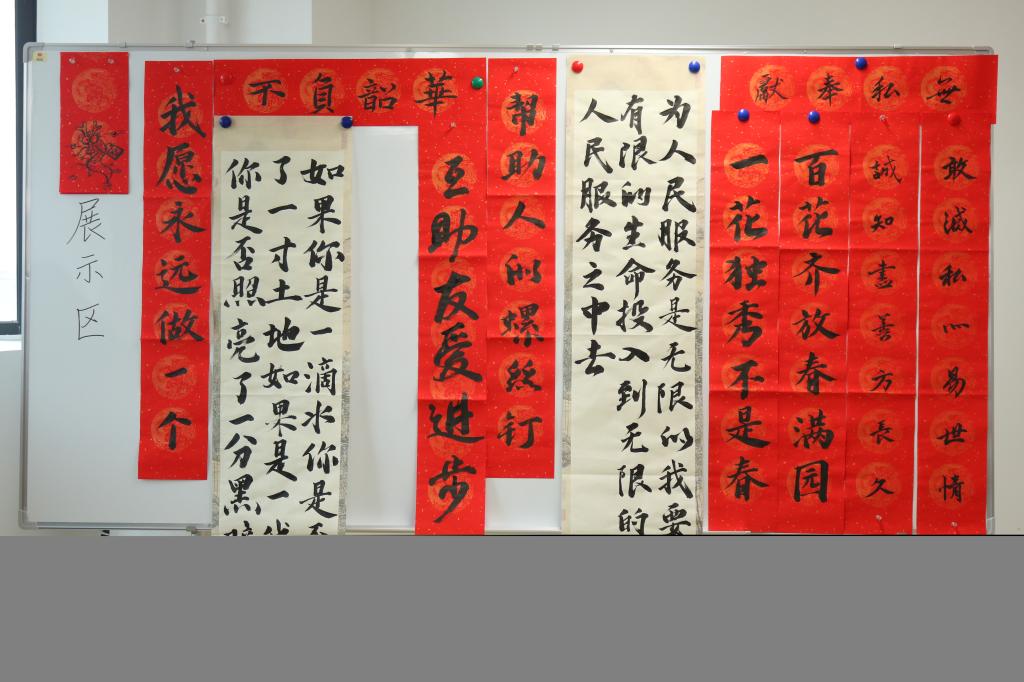 展示区
我愿永远做一个
不負韶華
如果你是一滴水你是
了一寸土地如果是一
你是否照亮了一分黑
互助友爱进步
幫助人的螺絲钉
为人民服务是无限的我要
有限的生命投入到无限的
人民服务之中去
無私奉獻
敢滅私心易世情
誠知盡善方長久
百花齐放春满园
一花独秀不是春